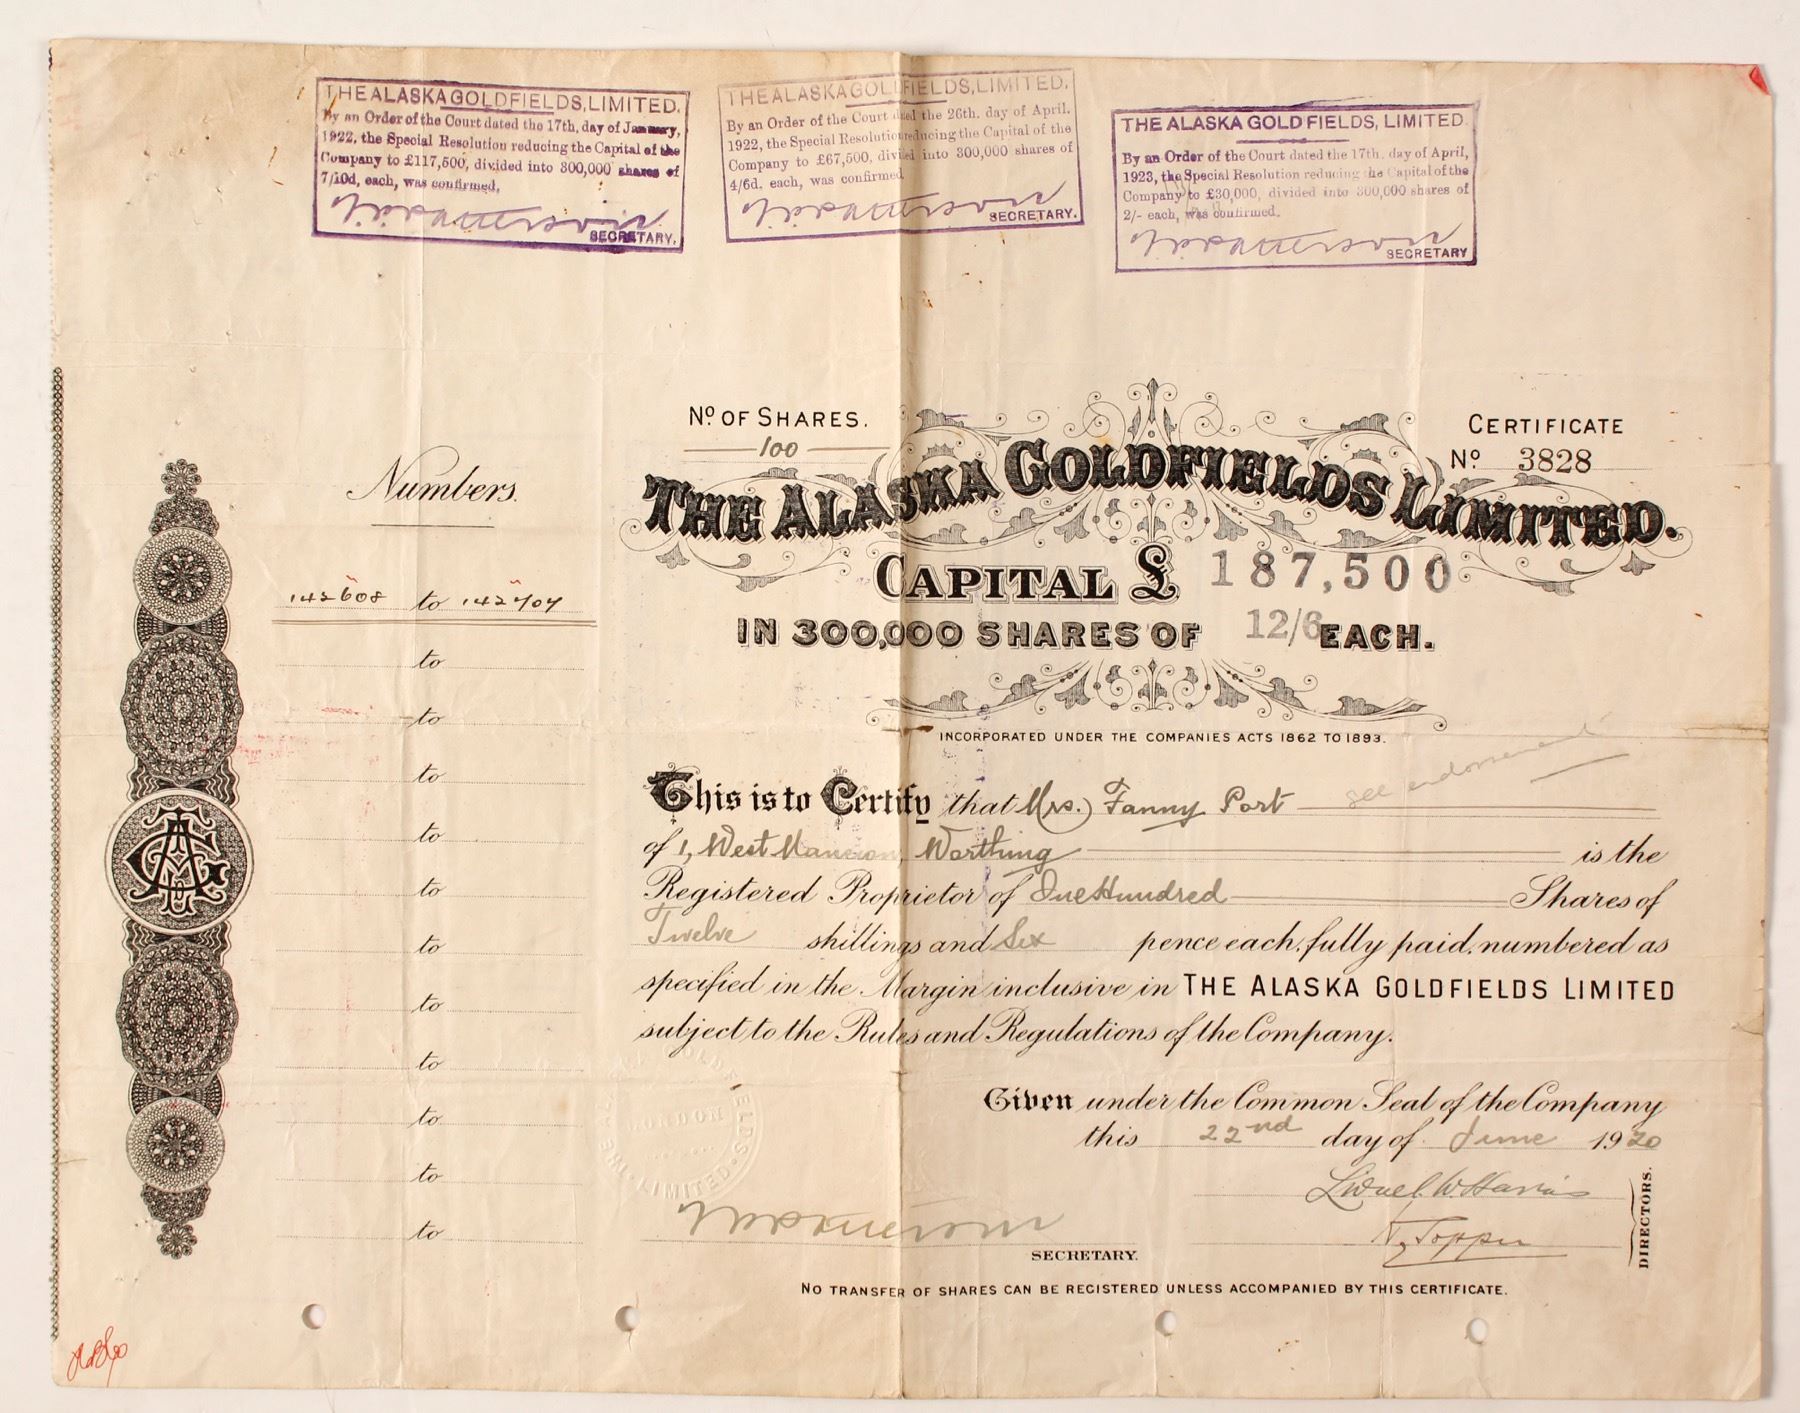 THE ALASKA GOLDFIELDS, LIMITED.
By an Order of the Court dated the 17th. day of January,
1922, the Special Resolution reducing the Capital of the
Company to £117,500, divided into 300,000 shares of
7/10d, each, was confirmed,
SECRETARY.
THE ALASKA GOLDFIELDS, LIMITED.
By an Order of the Court dated the 26th. day of April.
1922, the Special Resolution reducing the Capital of the
Company to £67,500, divided into 300,000 shares of
4/6d. each, was confirmed
SECRETARY.
THE ALASKA GOLDFIELDS, LIMITED.
By an Order of the Court dated the 17th. day of April,
1923, the Special Resolution reducing the Capital of the
Company to £30,000, divided into 300,000 shares of
2/- each, was confirmed.
SECRETARY
No. OF SHARES.
100
CERTIFICATE
No. 3828
THE ALASKA GOLDFIELDS LIMITED.
CAPITAL £ 187,500
IN 300,000 SHARES OF 12/6 EACH.
INCORPORATED UNDER THE COMPANIES ACTS 1862 TO 1893.
Numbers.
142608 to 142707
to
to
to
to
to
to
to
to
to
to
to
see endorsement
This is to Certify that Mrs. Fanny Port
of 1, West Mansion, Worthing is the
Registered Proprietor of One Hundred Shares of
Twelve shillings and Six pence each, fully paid, numbered as
specified in the Margin inclusive in THE ALASKA GOLDFIELDS LIMITED
subject to the Rules and Regulations of the Company.
Given under the Common Seal of the Company
this 22nd day of June 1920
THE ALASKA GOLDFIELDS LIMITED
LONDON
Lionel W Harris
DIRECTORS.
SECRETARY.
NO TRANSFER OF SHARES CAN BE REGISTERED UNLESS ACCOMPANIED BY THIS CERTIFICATE.